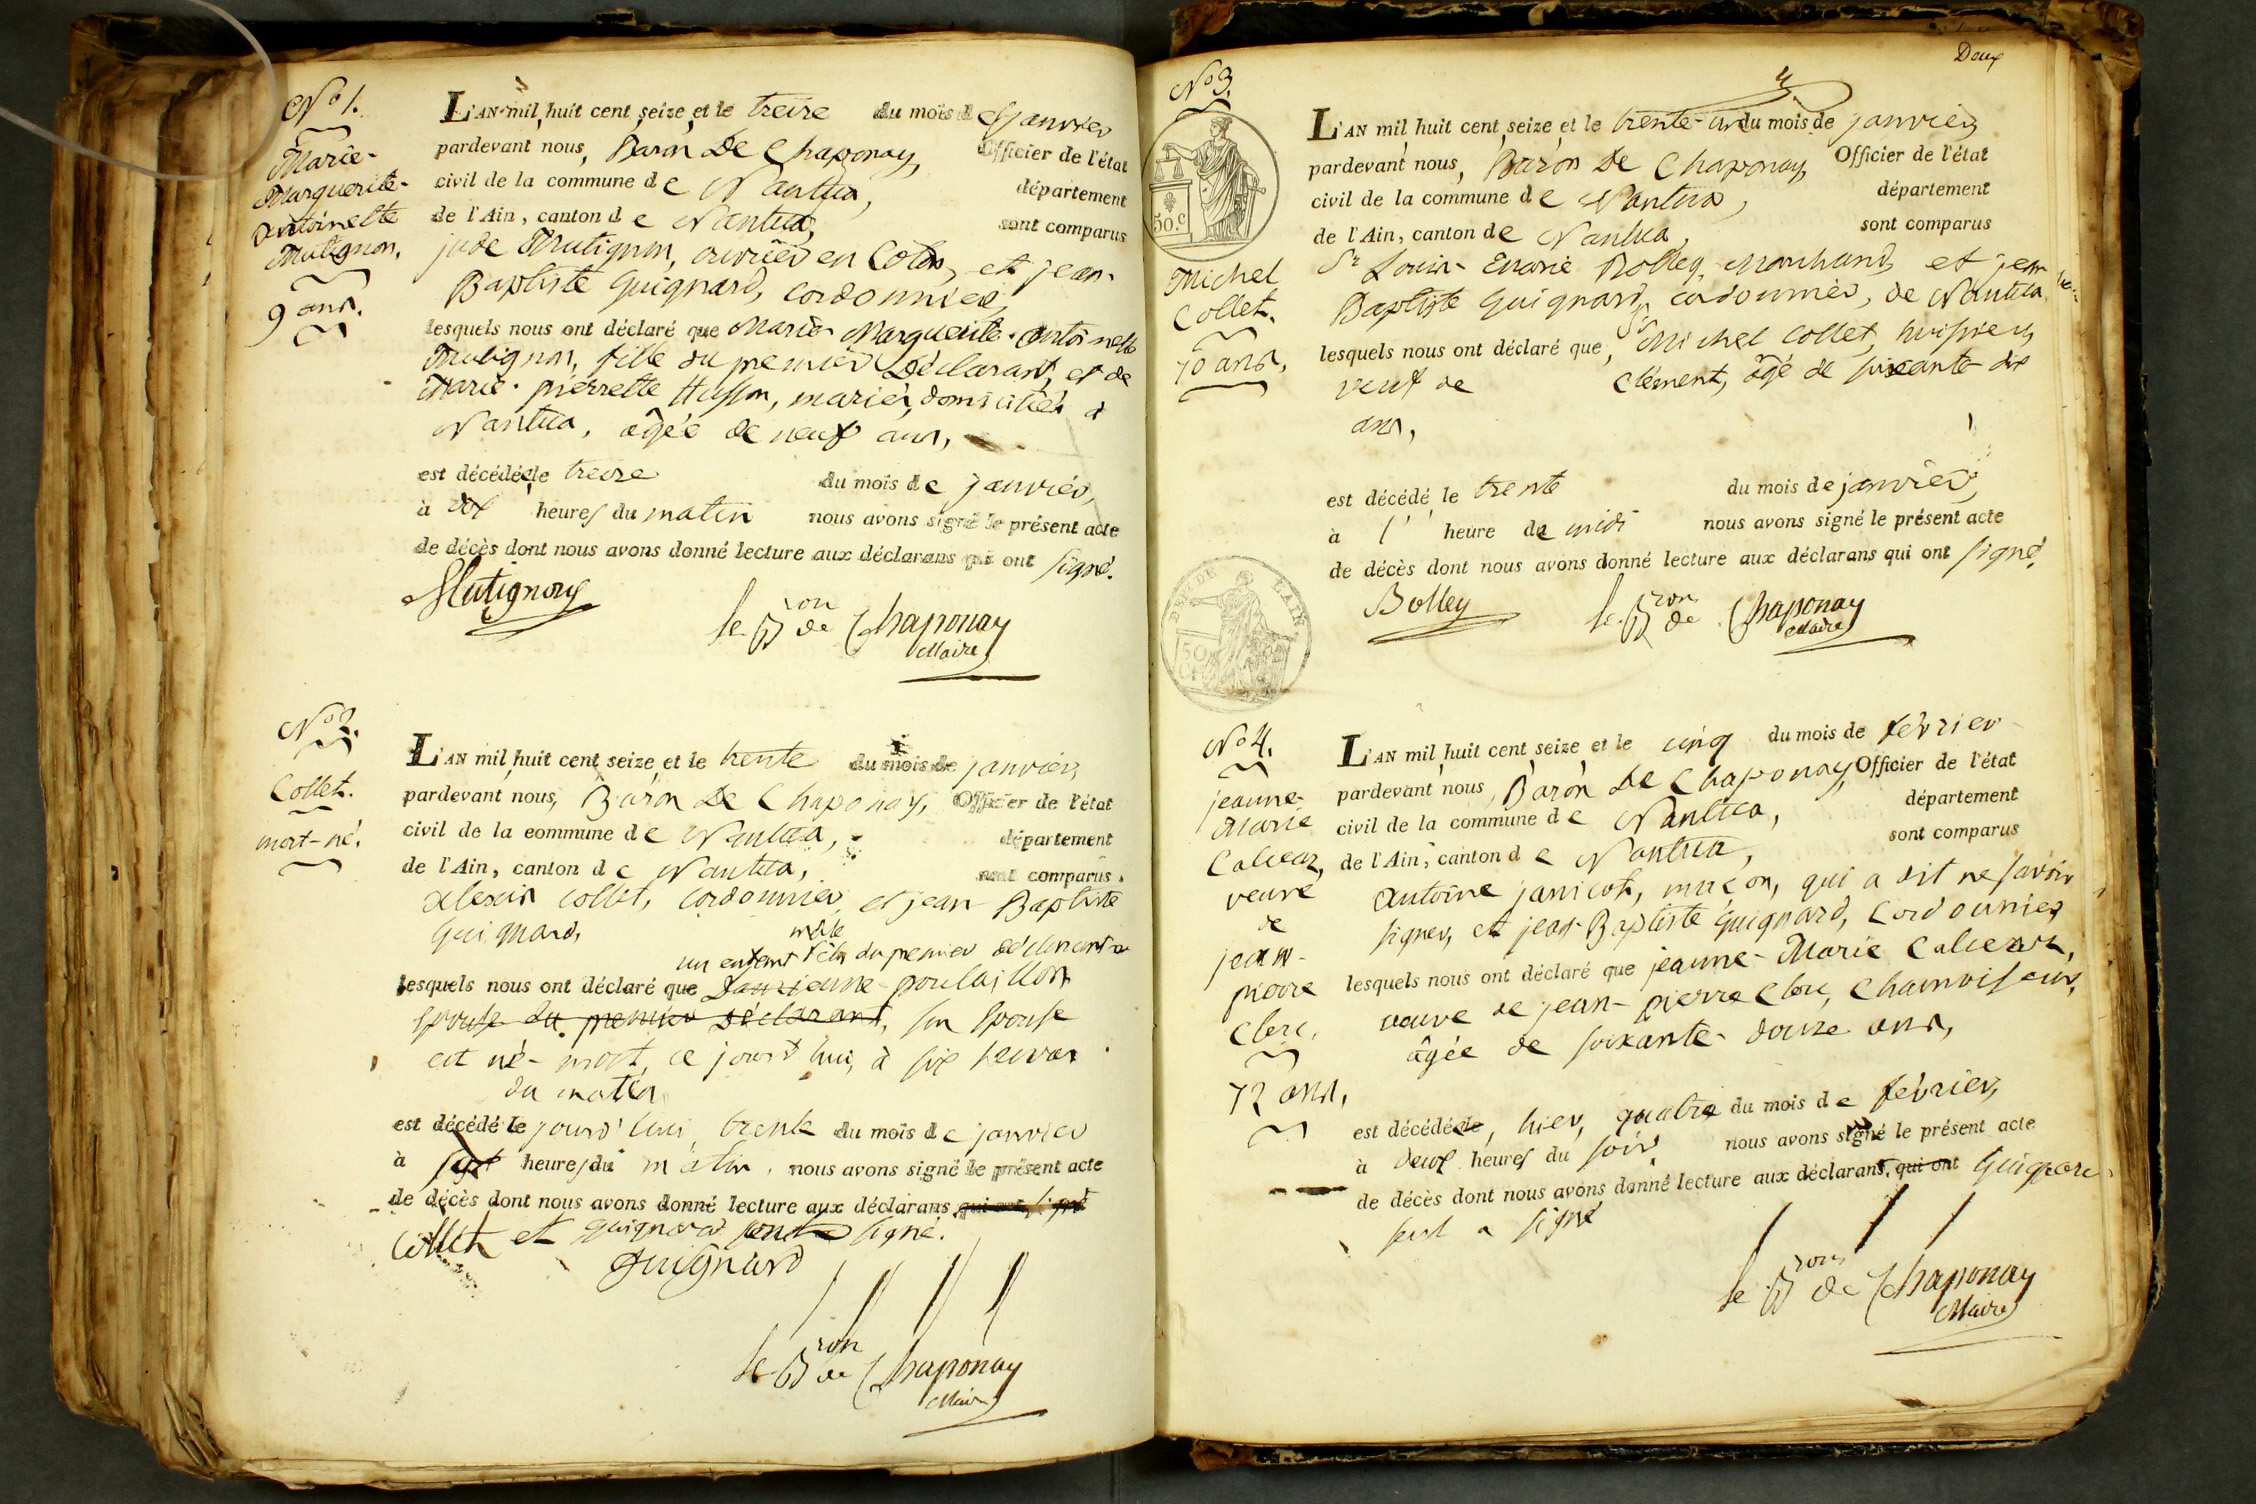 No 1.
Marie-
Marguerite-
Antoinette
Mutignon,
9 ans.
L'AN mil huit cent seize et le treize du mois de janvier
pardevant nous, Baron De Chaponay, Officier de l'état
civil de la commune de Nantua, département
de l'Ain, canton de Nantua, sont comparus
jude Mutignon, ouvrier en Coton, et jean-
Baptiste Guignard, cordonnier,
lesquels nous ont déclaré que Marie-Marguerite-Antoinette
Mutignon, fille du premier Déclarant, et de
Marie-pierrette Husson, mariés, domiciliés à
Nantua, âgée de neuf ans,
est décédée le treize du mois de janvier,
à dix heures du matin nous avons signé le présent acte
de décès dont nous avons donné lecture aux déclarans qui ont signé.
Mutignon
le Bron de Chaponay
Maire
No 2.
Collet.
mort-né.
L'AN mil huit cent seize et le trente du mois de janvier
pardevant nous, Baron De Chaponay, Officier de l'état
civil de la commune de Nantua, département
de l'Ain, canton de Nantua, sont comparus
alexis collet, cordonnier, et jean Baptiste
Guignard,
mâle
un enfant fils du premier déclarant
lesquels nous ont déclaré que poulaillon
épouse du premier déclarant, son épouse
est né-mort, ce jourd'hui, à six heures
du matin
est décédé le jourd'hui trente du mois de janvier
à sept heures du matin, nous avons signé le présent acte
de décès dont nous avons donné lecture aux déclarans qui ont signé
Collet et guignard ont signé.
guignard
le Bron de Chaponay
Maire
Deux
No 3.
50 c.
Michel
Collet.
70 ans,
L'AN mil huit cent seize et le trente-un du mois de janvier
pardevant nous, Baron De Chaponay, Officier de l'état
civil de la commune de Nantua, département
de l'Ain, canton de Nantua, sont comparus
Sr Louis-Marie Bolley, Marchand, et jean
Baptiste Guignard, cordonnier, de Nantua
lesquels nous ont déclaré que, Sr Michel Collet, huissier,
veuf de Clément, âgé de soixante dix
ans,
est décédé le trente du mois de janvier,
à 1 heure de midi nous avons signé le présent acte
de décès dont nous avons donné lecture aux déclarans qui ont signé.
Bolley
le Bron de Chaponay
Maire
DEP. DE L'AIN
50
No 4.
jeanne-
Marie
veuve
de
jean-
pierre
Clerc,
72 ans,
L'AN mil huit cent seize et le cinq du mois de février
pardevant nous, Baron De Chaponay, Officier de l'état
civil de la commune de Nantua, département
de l'Ain, canton de Nantua, sont comparus
antoine janicot, maçon, qui a dit ne savoir
signer, et jean-Baptiste Guignard, Cordonnier
lesquels nous ont déclaré que jeanne-Marie
veuve de jean-pierre Clerc, Chamoiseur,
âgée de soixante-douze ans,
est décédée le, hier, quatre du mois de février,
à deux heures du soir, nous avons signé le présent acte
de décès dont nous avons donné lecture aux déclarans, qui ont Guignard
seul a signé
le Bron de Chaponay
Maire